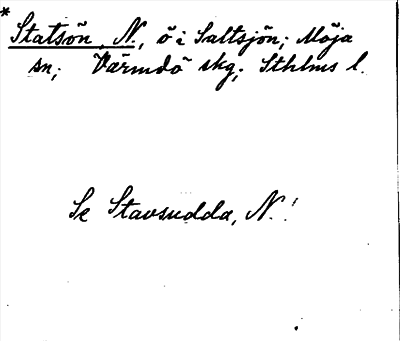 *Statsön, N., ö i Saltsjön; Möja
sn; Värmdö skg; Sthlms l.
Se Stavsudda, N.!